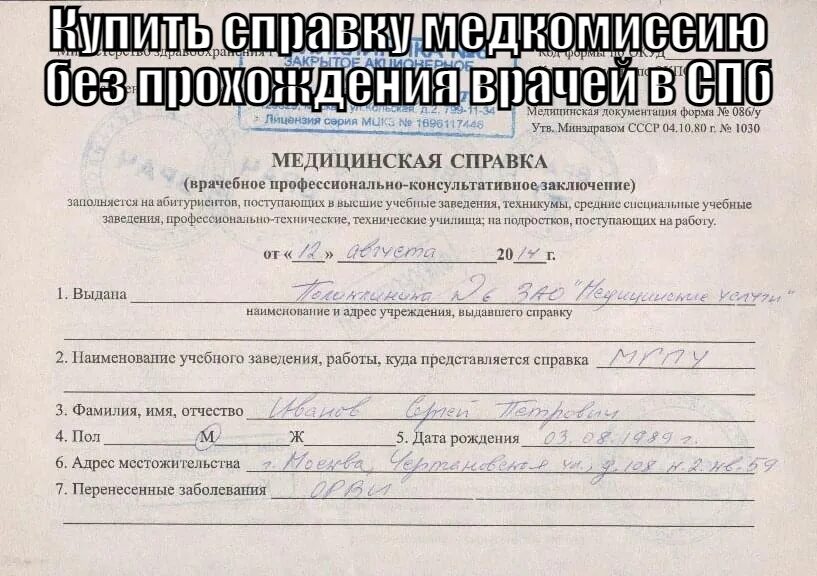 Купить справку медкомиссию
без прохождения врачей в СПб
Код формы по ОКУД
ЗАКРЫТОЕ АКЦИОНЕРНОЕ
ул.Кольская, д.2, 799-11-34
Лицензия серия МЦКЗ № 1696117446
Медицинская документация форма № 086/у
Утв. Минздравом СССР 04.10.80 г. № 1030
МЕДИЦИНСКАЯ СПРАВКА
(врачебное профессионально-консультативное заключение)
заполняется на абитуриентов, поступающих в высшие учебные заведения, техникумы, средние специальные учебные
заведения, профессионально-технические, технические училища; на подростков, поступающих на работу.
от « 12 » августа 2014 г.
1. Выдана Поликлиника № 6 ЗАО "Медицинские услуги"
наименование и адрес учреждения, выдавшего справку
2. Наименование учебного заведения, работы, куда представляется справка МГПУ
3. Фамилия, имя, отчество Иванов Сергей Петрович
4. Пол М Ж 5. Дата рождения 03.08.1989 г.
6. Адрес местожительства г. Москва, Чертановская ул., д. 108 к. 2. кв. 59
7. Перенесенные заболевания ОРВИ